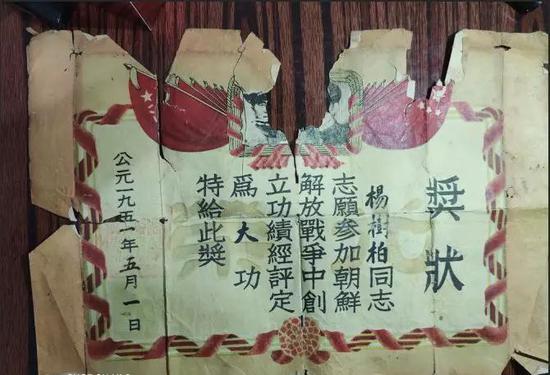 獎狀
楊樹柏同志
志願參加朝鮮
解放戰爭中創
立功績經評定
為大功
特給此獎
公元一九五一年五月一日